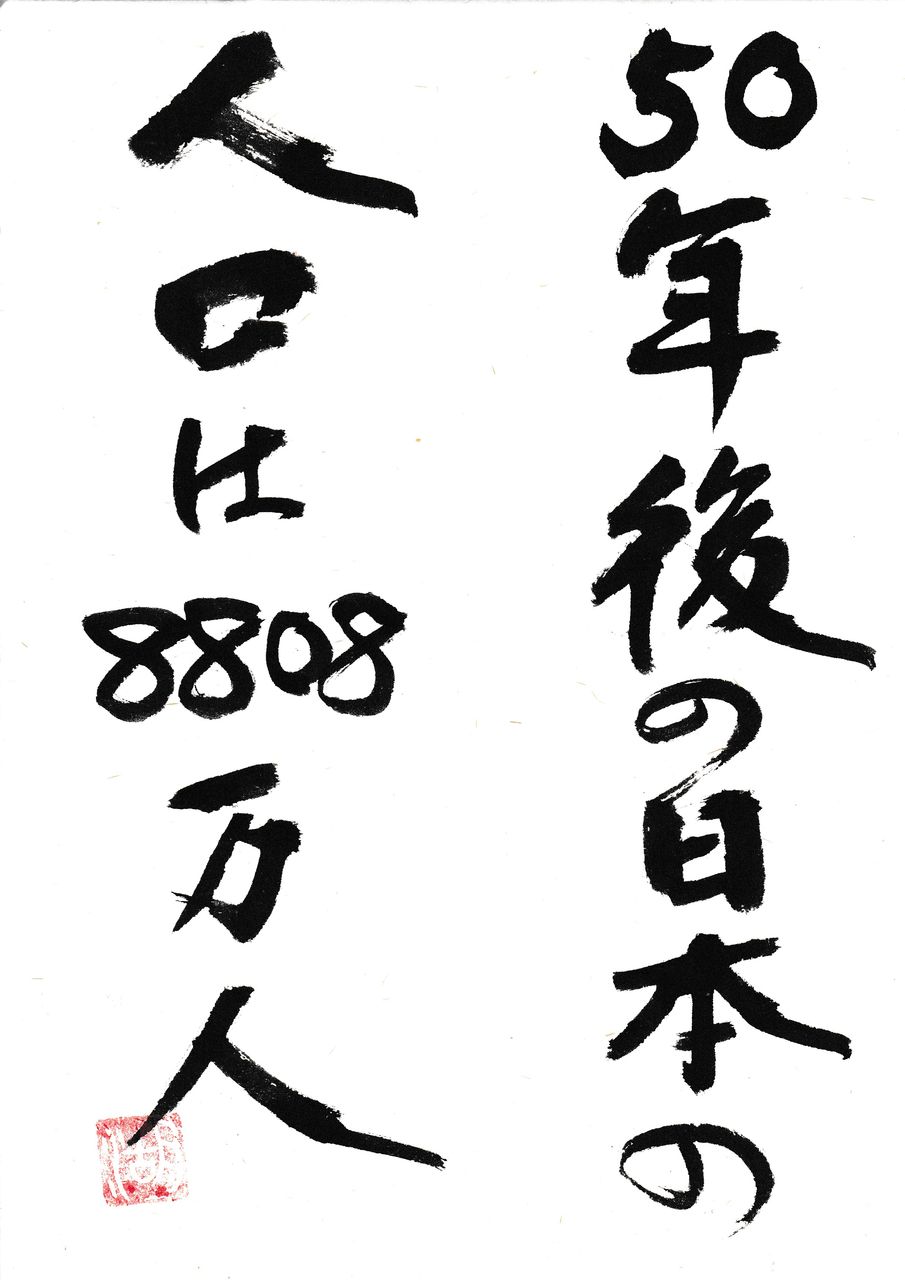 50年後の日本の
人口は8808万人